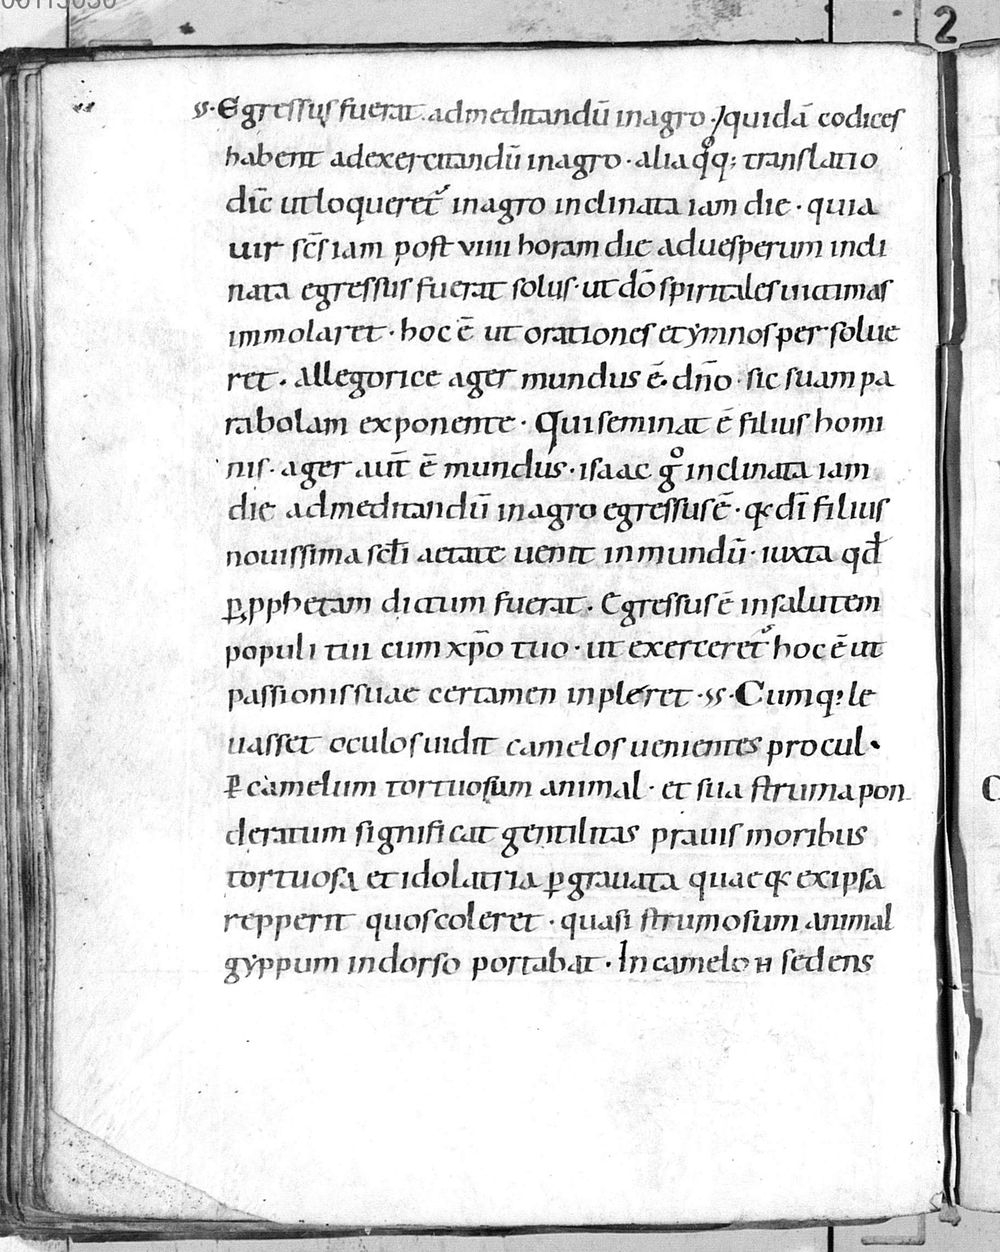 00115030
2
Egressus fuerat. ad meditandū in agro · quidā codices
habent ad exercitandū in agro · alia qͦq; translatio
dic̄ ut loqueret᷑ in agro inclinata iam die · quia
uir sc̄s iam post viiii horam die ad uesperum incli
nata egressus fuerat solus · ut dō spiritales uictimas
immolaret · hoc ē ut orationes et ymnos persolue
ret. Allegorice ager mundus ē. dn̄o sic suam pa
rabolam exponente · Qui seminat ē filius homi
nis · ager aut̄ ē mundus · isaac gͦ inclinata iam
die ad meditandū in agro egressus ē · qꝛ dī filius
nouissima scl̄i aetate uenit in mundū · iuxta qđ
ꝑ ꝓphetam dictum fuerat. Egressus ē in salutem
populi tui cum xp̄o tuo · ut exerceret᷑ hoc ē ut
passionis suae certamen inpleret · Cumq; le
uasset oculos uidit camelos uenientes procul ·
ꝑ camelum tortuosum animal · et sua struma pon
deratum significat gentilitas prauis moribus
tortuosa et idolatria ꝑgrauata quae qꝛ ex ipsa
repperit quos coleret · quasi strumosum animal
gyppum in dorso portabat · In camelo н sedens